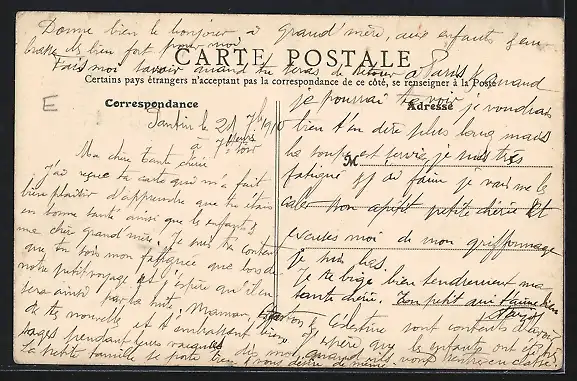 Donne bien le bonjour à grand'mère, aux enfants
les bien fort pour moi
Fais moi savoir quand tu seras de retour à Paris & quand
CARTE POSTALE
Certains pays étrangers n'acceptant pas la correspondance de ce côté, se renseigner à la Poste
E
Correspondance
le 21 7bre 1910
à 7 heures soir
Ma chère tante chérie
J'ai reçu ta carte qui m'a fait
bien plaisir d'apprendre que tu étais
en bonne santé ainsi que les enfants &
ma chère grand'mère. Je suis content
que tu sois moins fatiguée que lors de
notre petit voyage et j'espère qu'il en
sera ainsi par la suite. Maman,
Adresse
M
je pourrai te voir je voudrais
bien t'en dire plus long mais
la soupe est servie, je suis très
fatigué & j'ai faim je vais me le
caler mon apétit petite chérie et
excuses moi de mon griffonnage
je suis las.
Je te bige bien tendrement ma
tante chérie. Ton petit qui t'aime bien
& Célestine sont contents d'avoir
de tes nouvelles et t'embrassent bien J'espère que les enfants ont été
sages pendant leurs vacances dis moi quand ils vont rentrer en classe.
La petite famille se porte bien & vous désire de même.